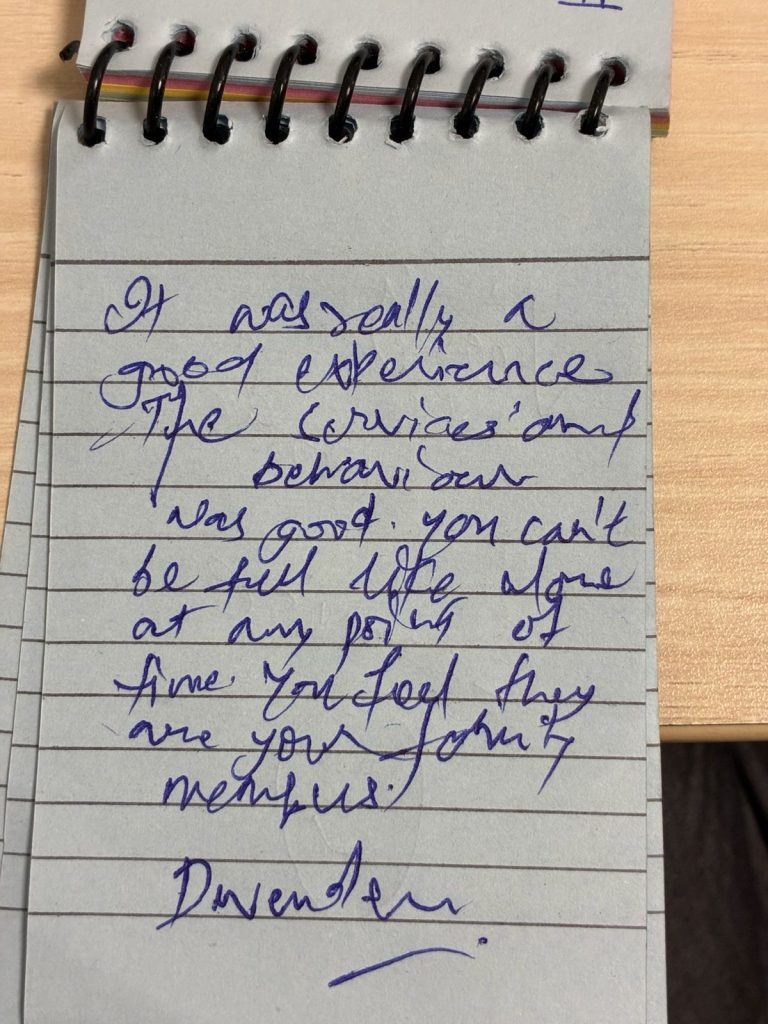 It was really a
good experience
The services and
behaviour
was good. you can't
be feel like alone
at any point of
time. You feel they
are your family
members.